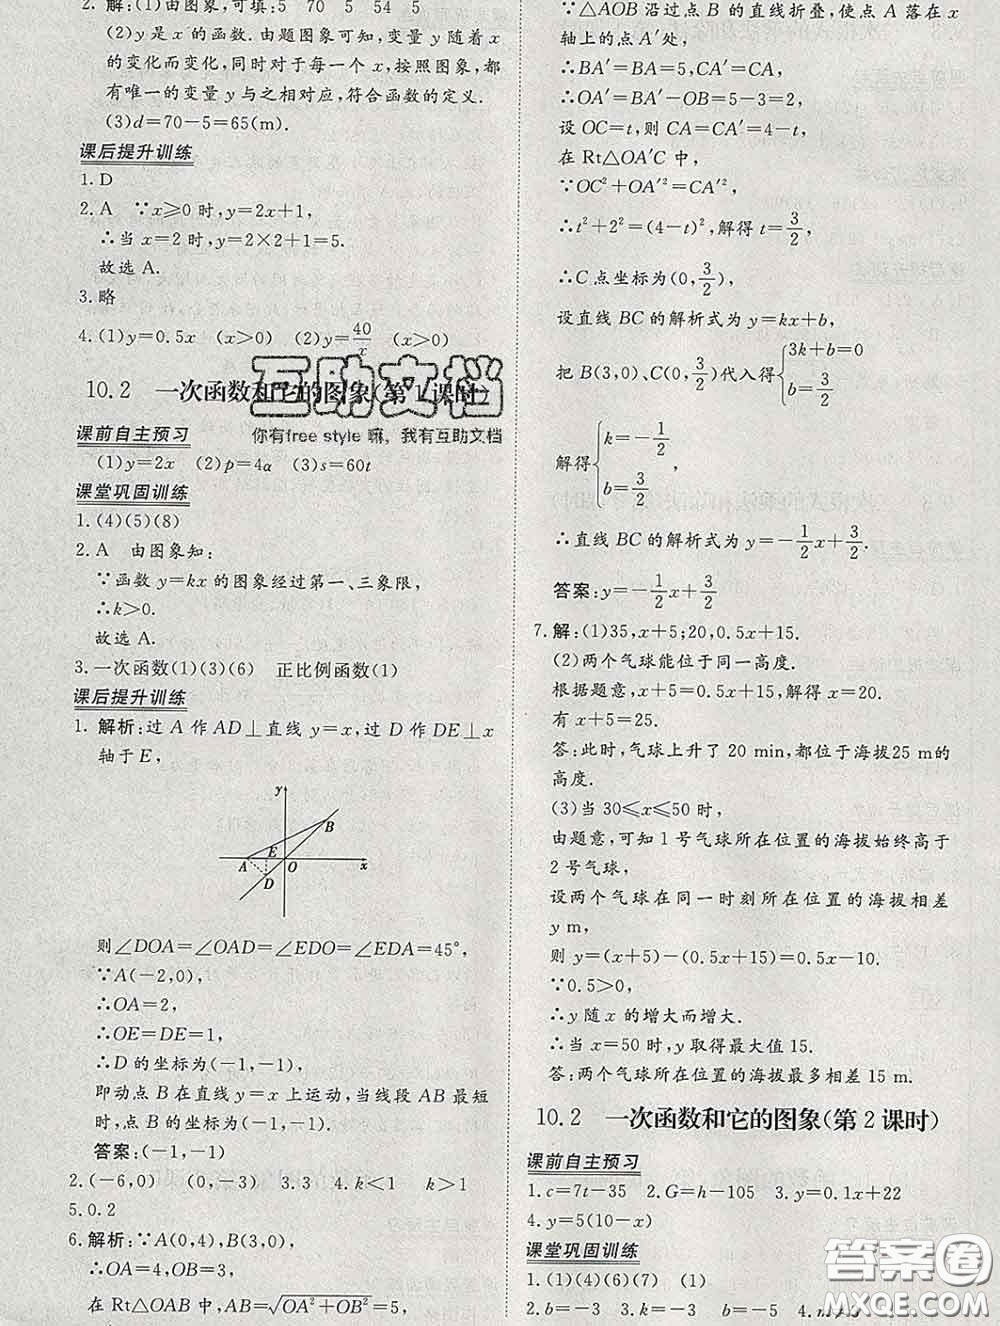 2. 解:(1)由图象,可填:5 70 5 54 5
(2)y是x的函数.由题图象可知,变量y随着x
的变化而变化,同时对于每一个x,按照图象,都
有唯一的变量y与之相对应,符合函数的定义.
(3)d=70-5=65(m).
课后提升训练
1. D
2. A ∵x≥0时,y=2x+1,
∴当x=2时,y=2×2+1=5.
故选A.
3. 略
4. (1)y=0.5x (x>0) (2)y=40/x (x>0)
10.2 一次函数和它的图象(第1课时)
课前自主预习
(1)y=2x (2)p=4a (3)s=60t
课堂巩固训练
1. (4)(5)(8)
2. A 由图象知:
∵函数y=kx的图象经过第一、三象限,
∴k>0.
故选A.
3. 一次函数(1)(3)(6) 正比例函数(1)
课后提升训练
1. 解析:过A作AD⊥直线y=x,过D作DE⊥x
轴于E,
y
B
E
A O x
D
则∠DOA=∠OAD=∠EDO=∠EDA=45°,
∵A(-2,0),
∴OA=2,
∴OE=DE=1,
∴D的坐标为(-1,-1),
即动点B在直线y=x上运动,当线段AB最短
时,点B的坐标为(-1,-1).
答案:(-1,-1)
2. (-6,0) (0,-3) 3. 3 4. k<1 k>1
5. 0.2
6. 解析:∵A(0,4),B(3,0),
∴OA=4,OB=3,
在Rt△OAB中,AB=√(OA²+OB²)=5,
∵△AOB沿过点B的直线折叠,使点A落在x
轴上的点A′处,
∴BA′=BA=5,CA′=CA,
∴OA′=BA′-OB=5-3=2,
设OC=t,则CA=CA′=4-t,
在Rt△OA′C中,
∵OC²+OA′²=CA′²,
∴t²+2²=(4-t)²,解得t=3/2,
∴C点坐标为(0,3/2),
设直线BC的解析式为y=kx+b,
把B(3,0)、C(0,3/2)代入得{3k+b=0
b=3/2,
解得{k=-1/2
b=3/2,
∴直线BC的解析式为y=-1/2x+3/2.
答案:y=-1/2x+3/2
7. 解:(1)35,x+5;20,0.5x+15.
(2)两个气球能位于同一高度.
根据题意,x+5=0.5x+15,解得x=20.
有x+5=25.
答:此时,气球上升了20 min,都位于海拔25 m的
高度.
(3)当30≤x≤50时,
由题意,可知1号气球所在位置的海拔始终高于
2号气球,
设两个气球在同一时刻所在位置的海拔相差
y m,
则y=(x+5)-(0.5x+15)=0.5x-10.
∵0.5>0,
∴y随x的增大而增大.
∴当x=50时,y取得最大值15.
答:两个气球所在位置的海拔最多相差15 m.
10.2 一次函数和它的图象(第2课时)
课前自主预习
1. c=7t-35 2. G=h-105 3. y=0.1x+22
4. y=5(10-x)
课堂巩固训练
1. (1)(4)(6)(7) (1)
2. b=-3 k=-3 b=-5 4.
互助文档
你有free style 嘛，我有互助文档
答案圈
MXQE.COM